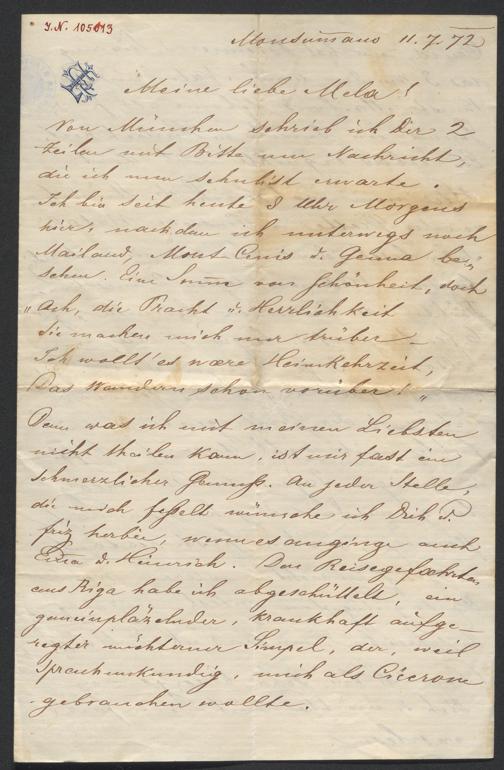 J.N. 105613
Monsummano 11.7.72
Meine liebe Mela!
Von München schrieb ich Dir 2
Zeilen mit Bitte um Nachricht,
die ich nun sehnlichst erwarte.
Ich bin seit heute 8 Uhr Morgens
hier, nachdem ich unterwegs noch
Mailand, Mont Cenis u. Genua be-
sehen. Eine Summe von Schönheit, doch
„ach, die Pracht u. Herrlichkeit
Sie machen mich nur trüber –
Ich wollt' es wære Heimkehrzeit,
Das Wandern schon vorüber!"
Denn was ich mit meinen Liebsten
nicht theilen kann, ist mir fast ein
schmerzlicher Genuss. An jeder Stelle,
die mich fesselt wünsche ich Dich u.
Friz herbei, wenn es anginge auch
u. Heinrich. Den Reisegefæhrten
aus Riga habe ich abgeschüttelt, ein
krankhaft aufge-
regter nüchterner Simpel, der, weil
sprachunkundig, mich als Cicerone
gebrauchen wollte.